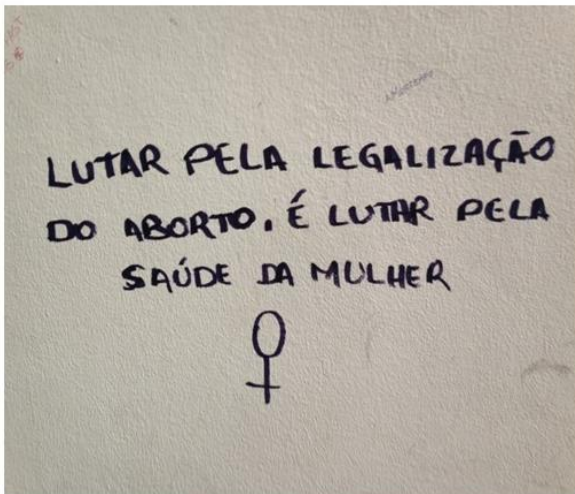 LUTAR PELA LEGALIZAÇÃO
DO ABORTO. É LUTAR PELA
SAÚDE DA MULHER